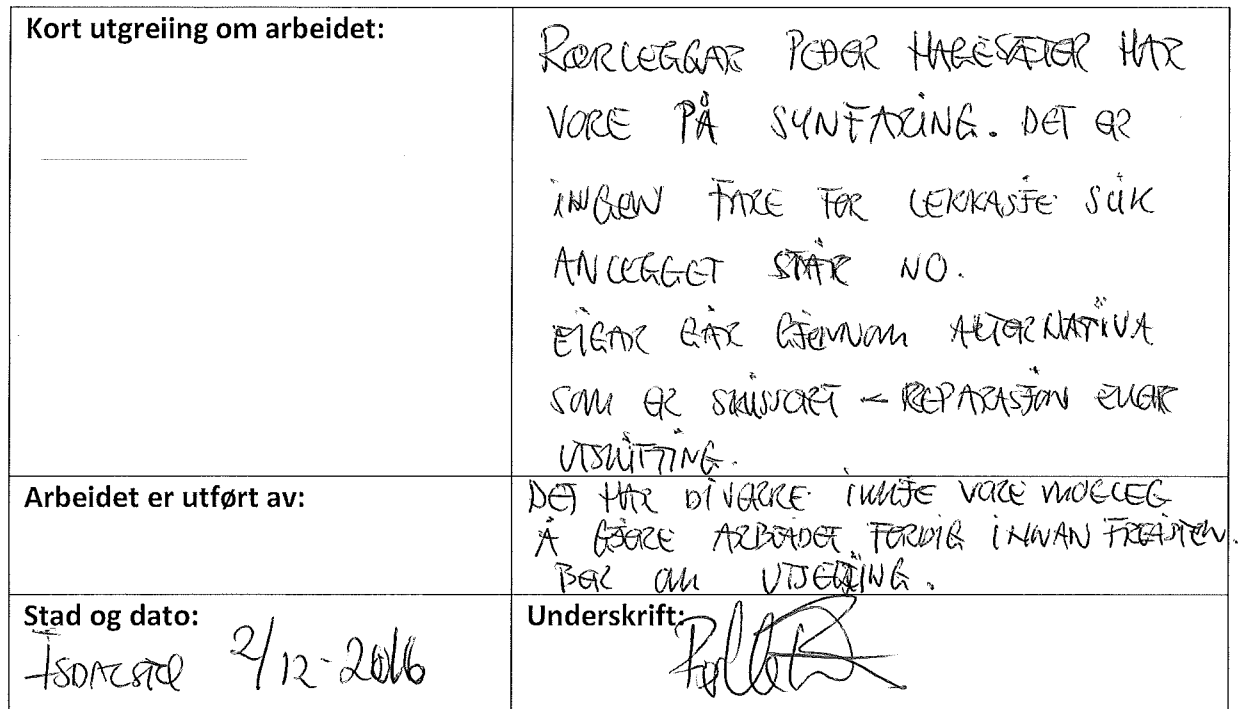 Kort utgreiing om arbeidet:
RØRLEGGAR PEDER HAGESÆTER HAR
VORE PÅ SYNFARING. DET ER
INGEN FARE FOR LEKKASJE SLIK
ANLEGGET STÅR NO.
EIGAR GÅR GJENNOM ALTERNATIVA
SOM ER SKISSERT - REPARASJON ELLER
UTSKIFTING.
Arbeidet er utført av:
DET HAR DIVERRE IKKJE VORE MOGLEG
Å GJERE ARBEIDET FERDIG INNAN FRISTEN.
BER OM UTSETJING.
Stad og dato:
ISDALSTØ 2/12-2016
Underskrift: